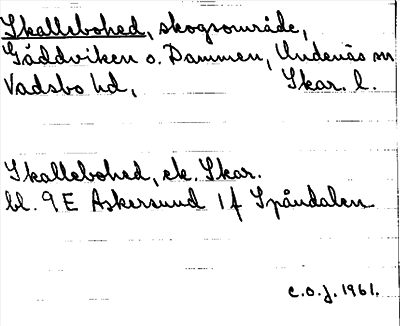 Skallebohed, skogsområde,
Gäddviken o. Dammen, Undenäs sn
Vadsbo hd, Skar. l.
Skallebohed, ek. Skar.
bl. 9E Askersund 1f Spåndalen
c.o.j. 1961.